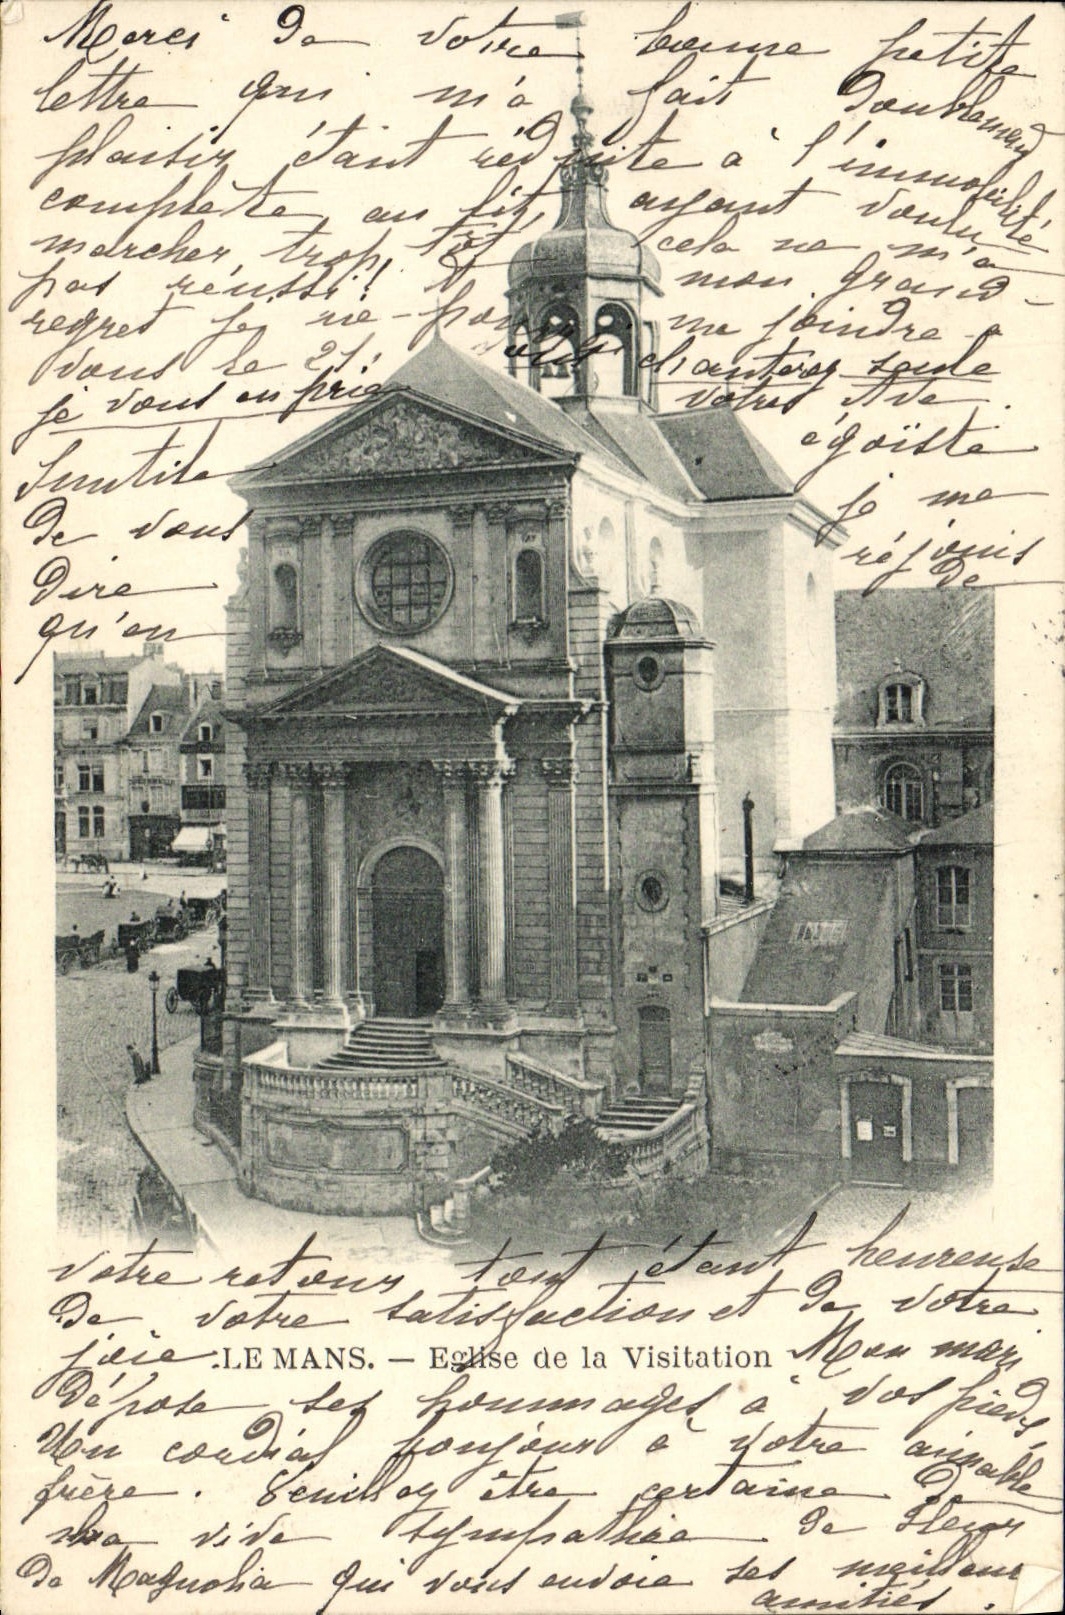 Merci de votre bonne petite
lettre qui m'a fait doublement
plaisir étant réduite à l'immobilité
complète au lit, ayant voulu
marcher trop tôt cela ne m'a
pas réussi! A mon grand-
regret je ne pourrai me joindre à
vous le 21! chanterez seule
je vous en prie votre Ave
égoïste
Inutile je me
de vous réjouis
dire de
qu'en
votre retour tout étant heureuse
de votre satisfaction et de votre
joie. Mon mari
LE MANS. — Eglise de la Visitation
dépose ses hommages à vos pieds
Un cordial bonjour à votre aimable
frère. Veuillez être certaine de
la vive sympathie de Fleur
de Magnolia qui vous envoie ses meilleures
amitiés.